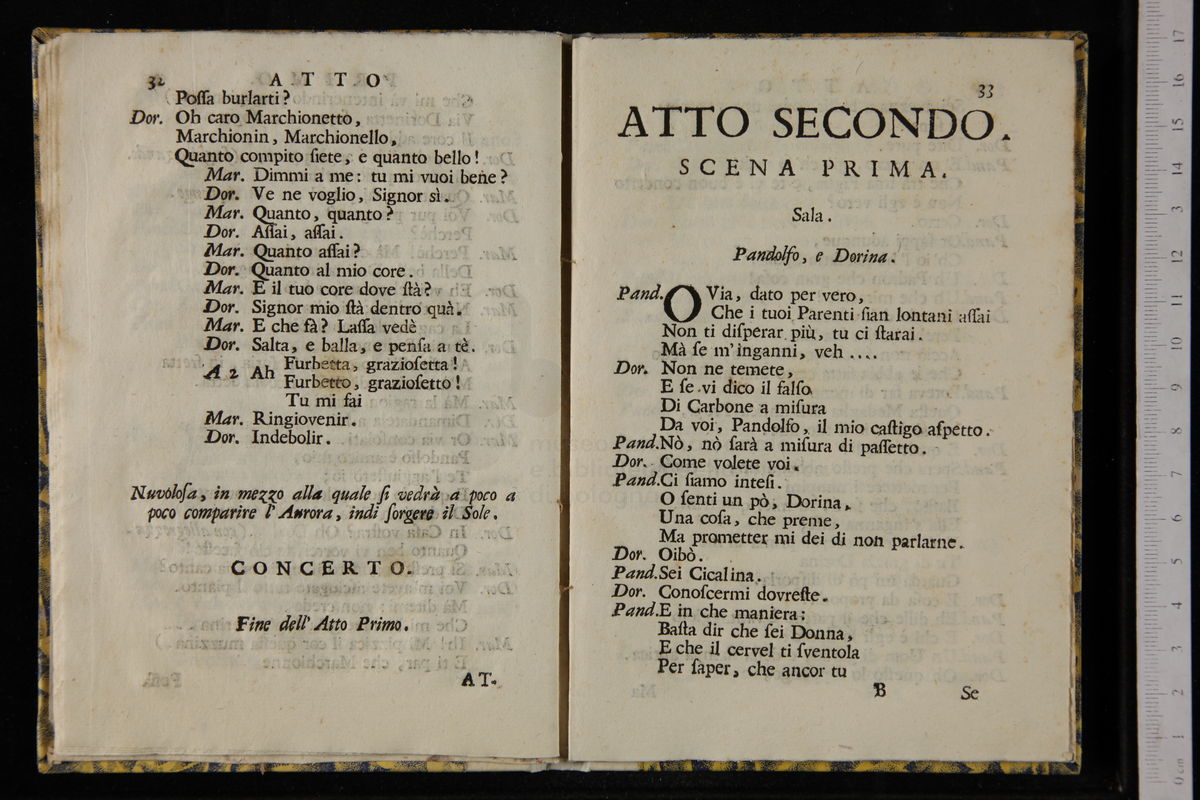 32 ATTO
Possa burlarti?
Dor. Oh caro Marchionetto,
Marchionin, Marchionello,
Quanto compito siete, e quanto bello!
Mar. Dimmi a me: tu mi vuoi bene?
Dor. Ve ne voglio, Signor sì.
Mar. Quanto, quanto?
Dor. Assai, assai.
Mar. Quanto assai?
Dor. Quanto al mio core.
Mar. E il tuo core dove stà?
Dor. Signor mio stà dentro quà.
Mar. E che fà? Lassa vedè
Dor. Salta, e balla, e pensa a tè.
A 2 Ah Furbetta, graziosetta!
Furbetto, graziosetto!
Tu mi fai
Mar. Ringiovenir.
Dor. Indebolir.
Nuvolosa, in mezzo alla quale si vedrà a poco a
poco comparire l' Aurora, indi sorgere il Sole.
CONCERTO.
Fine dell' Atto Primo.
AT-
33
ATTO SECONDO.
SCENA PRIMA.
Sala.
Pandolfo, e Dorina.
Pand. O Via, dato per vero,
Che i tuoi Parenti sian lontani assai
Non ti disperar più, tu ci starai.
Mà se m'inganni, veh ....
Dor. Non ne temete,
E se vi dico il falso
Di Carbone a misura
Da voi, Pandolfo, il mio castigo aspetto.
Pand. Nò, nò sarà a misura di passetto.
Dor. Come volete voi.
Pand. Ci siamo intesi.
O senti un pò, Dorina,
Una cosa, che preme,
Ma prometter mi dei di non parlarne.
Dor. Oibò.
Pand. Sei Cicalina.
Dor. Conoscermi dovreste.
Pand. E in che maniera:
Basta dir che sei Donna,
E che il cervel ti sventola
Per saper, che ancor tu
B Se